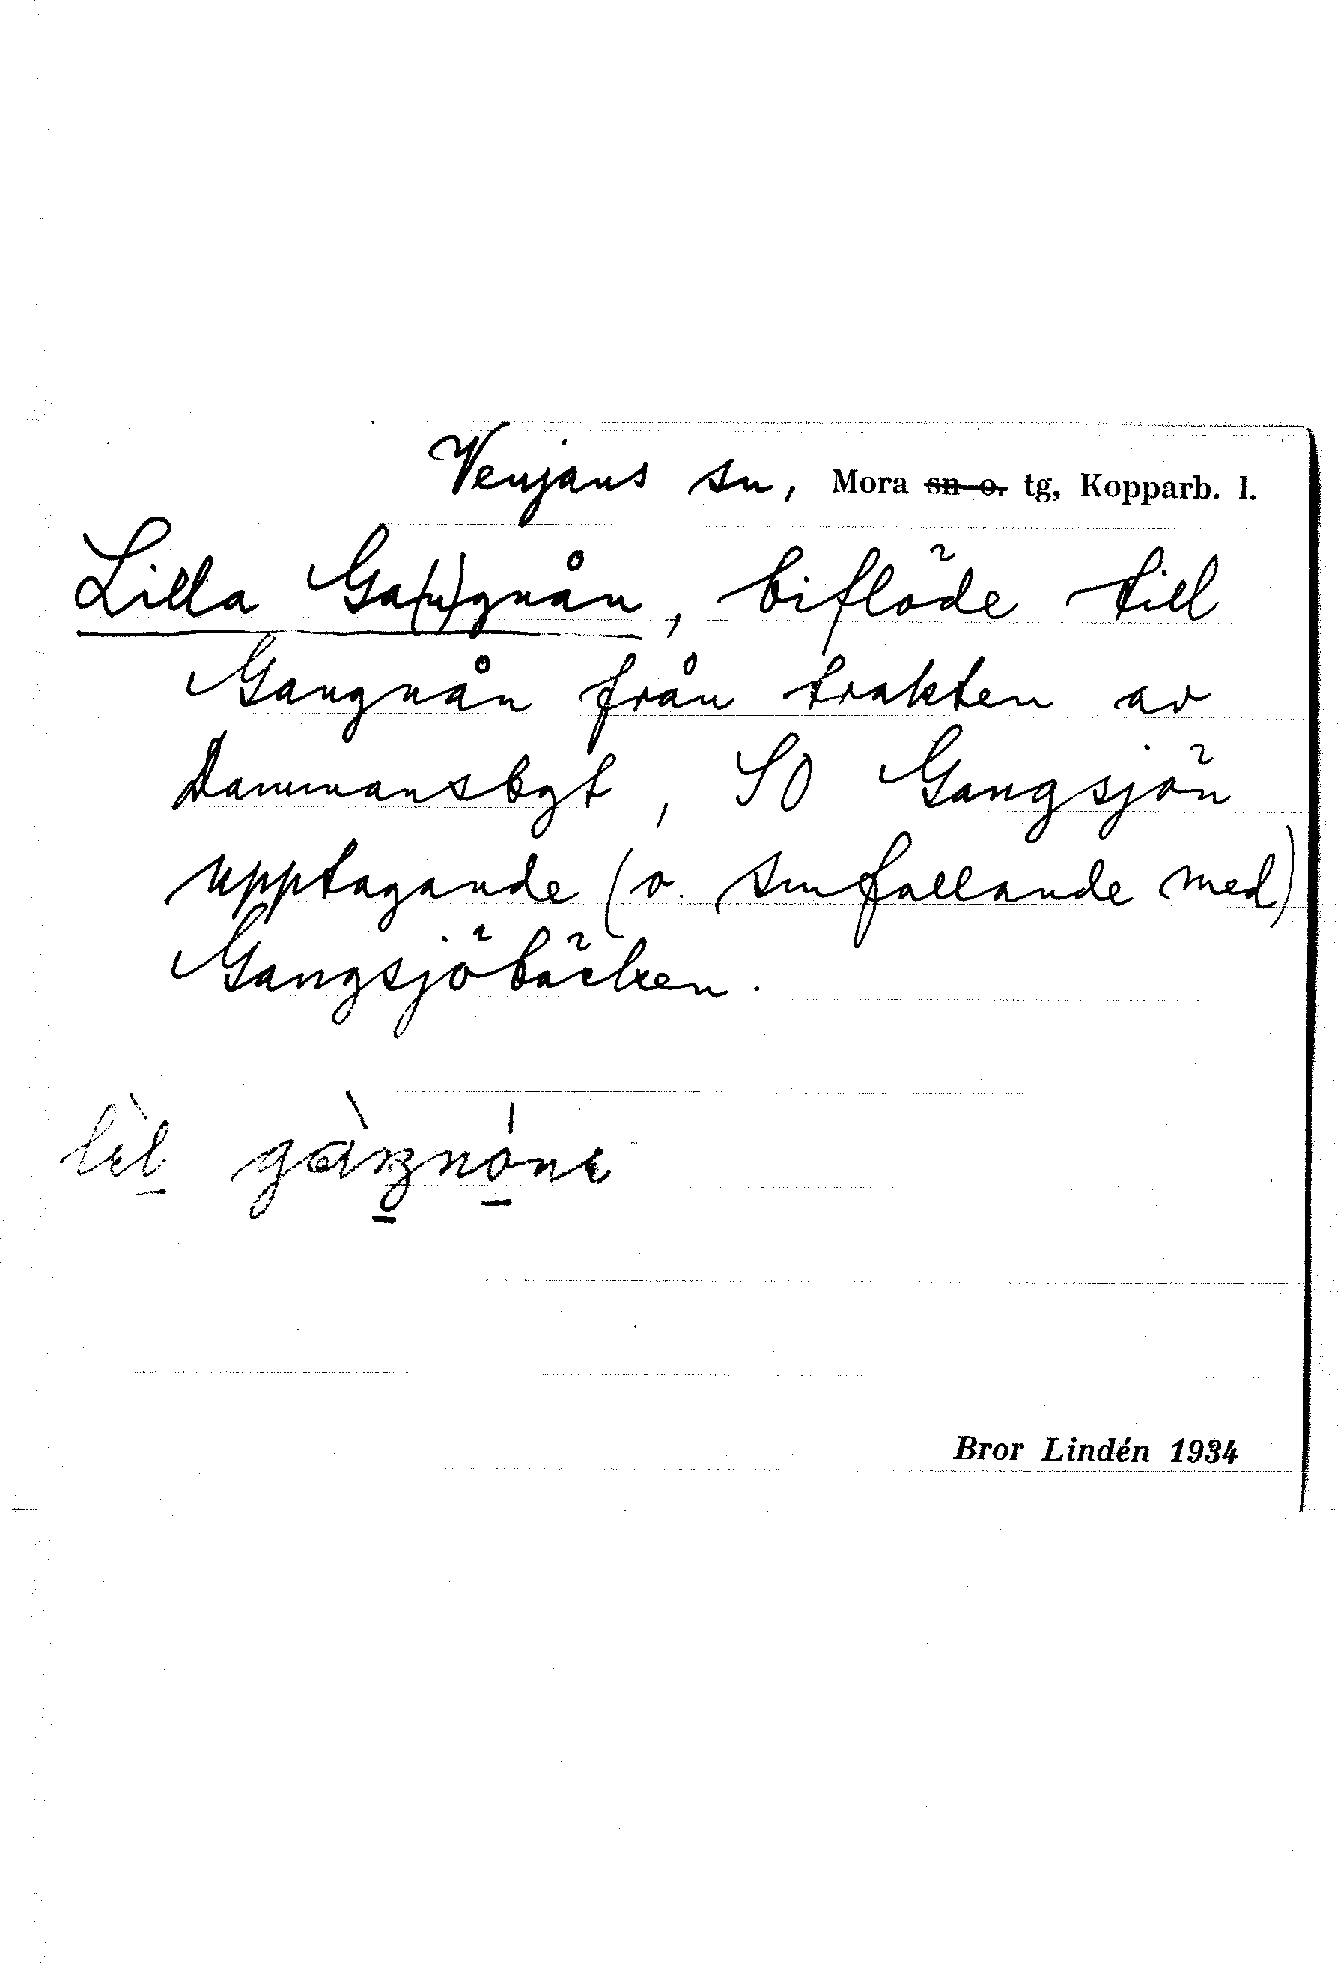 Venjans sn, Mora sn o. tg, Kopparb. l.
Lilla Ga(n)gnån, biflöde till
Gangnån från trakten av
Dammansbgt, SO Gangsjön
upptagande (o. smfallande med)
Gangsjöbäcken.
Bror Lindén 1934